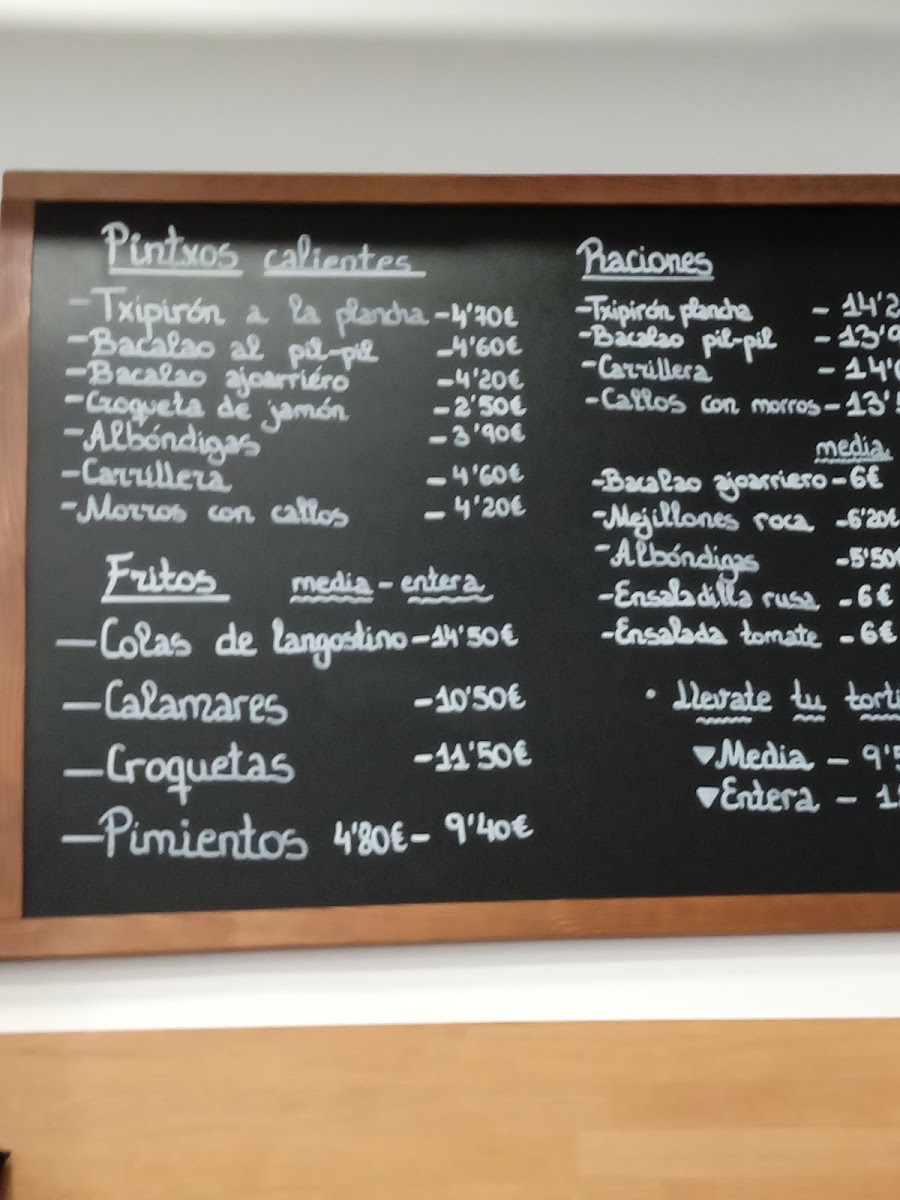 Pintxos calientes
- Txipirón a la plancha - 4'70€
- Bacalao al pil-pil - 4'60€
- Bacalao ajoarriéro - 4'20€
- Croqueta de jamón - 2'50€
- Albóndigas - 3'90€
- Carrillera - 4'60€
- Morros con callos - 4'20€
Fritos media - entera
- Colas de langostino - 14'50€
- Calamares - 10'50€
- Croquetas - 11'50€
- Pimientos 4'80€ - 9'40€
Raciones
- Txipirón plancha - 14'2
- Bacalao pil-pil - 13'9
- Carrillera - 14'
- Callos con morros - 13'
media
- Bacalao ajoarriero - 6€
- Mejillones roca - 6'20€
- Albóndigas - 5'50
- Ensaladilla rusa - 6€
- Ensalada tomate - 6€
• Llevate tu torti
▼ Media - 9'5
▼ Entera - 1